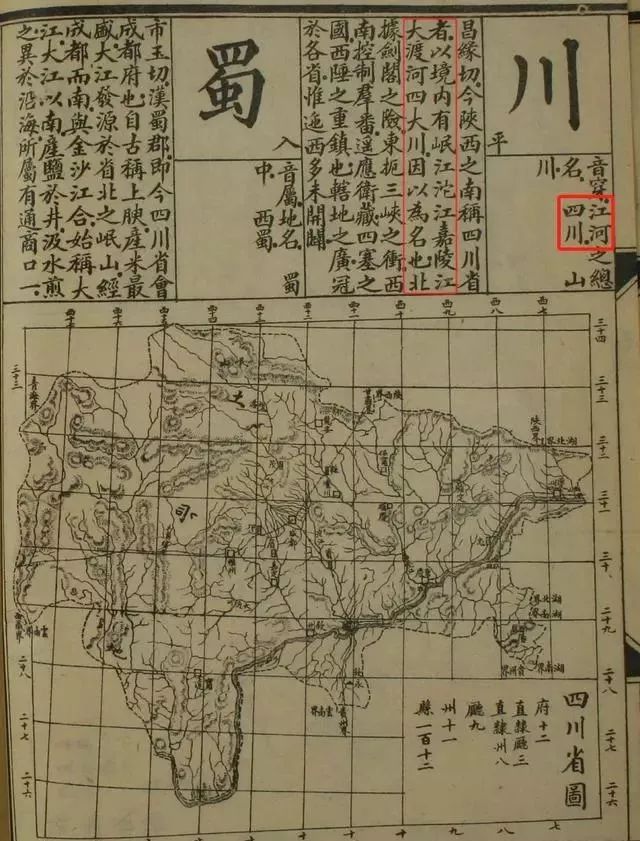 川
平
音穿。江河之總
名。四川。山
川
昌緣切。今陝西之南稱四川省
者。以境內有岷江沱江嘉陵江
大渡河四大川。因以為名也。北
據劍閣之險。東扼三峽之衝。西
南控制羣番。遥應衛藏。四塞之
國。西陲之重鎮也。轄地之廣。冠
於各省。惟迤西多未開闢
蜀
入
音屬。地名。蜀
中。西蜀
市玉切。漢蜀郡。即今四川省會
成都府也。自古稱上腴。產米最
盛。大江發源於省北之岷山。經
成都而南。與金沙江合。始稱大
江。大江以南產鹽於井。汲水煎
之。異於沿海。所屬有通商口一
四川省圖
府十二
直隸廳三
直隸州八
廳九
州十一
縣一百十二
西七
西八
西九
西十
西十一
西十二
西十三
西十四
三十四
三十三
三十二
三十一
三十
二十九
二十八
二十七
二十六
青海界
陝西界
湖北界
湖南界
貴州界
雲南界